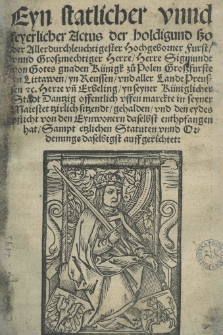 Eyn statlicher vnnd
feyerlicher Actus der holdigund so
der Allerdurchleuchtigester Hochgeborner Furst/
vnnd Grosmechtiger Herre/ Herre Sigmundt
von Gotts gnaden Künigk zu Polen Grosfurste
yn Littawen/ yn Reussen/ vnd aller Lande Preus-
sen ꝛc. Herre vñ Erbeling/ yn seyner Küniglichen
Stadt Dantzig offentlich vffen marckte in seyner
Maiestet tzirlich sitzende/ gehalden/ vnd den eydes
pflicht von den Eynwonern daselbst enthpfangen
hat/ Sampt etzlichen Statuten vnnd Or
denunge daselbigst auffgerichtet: